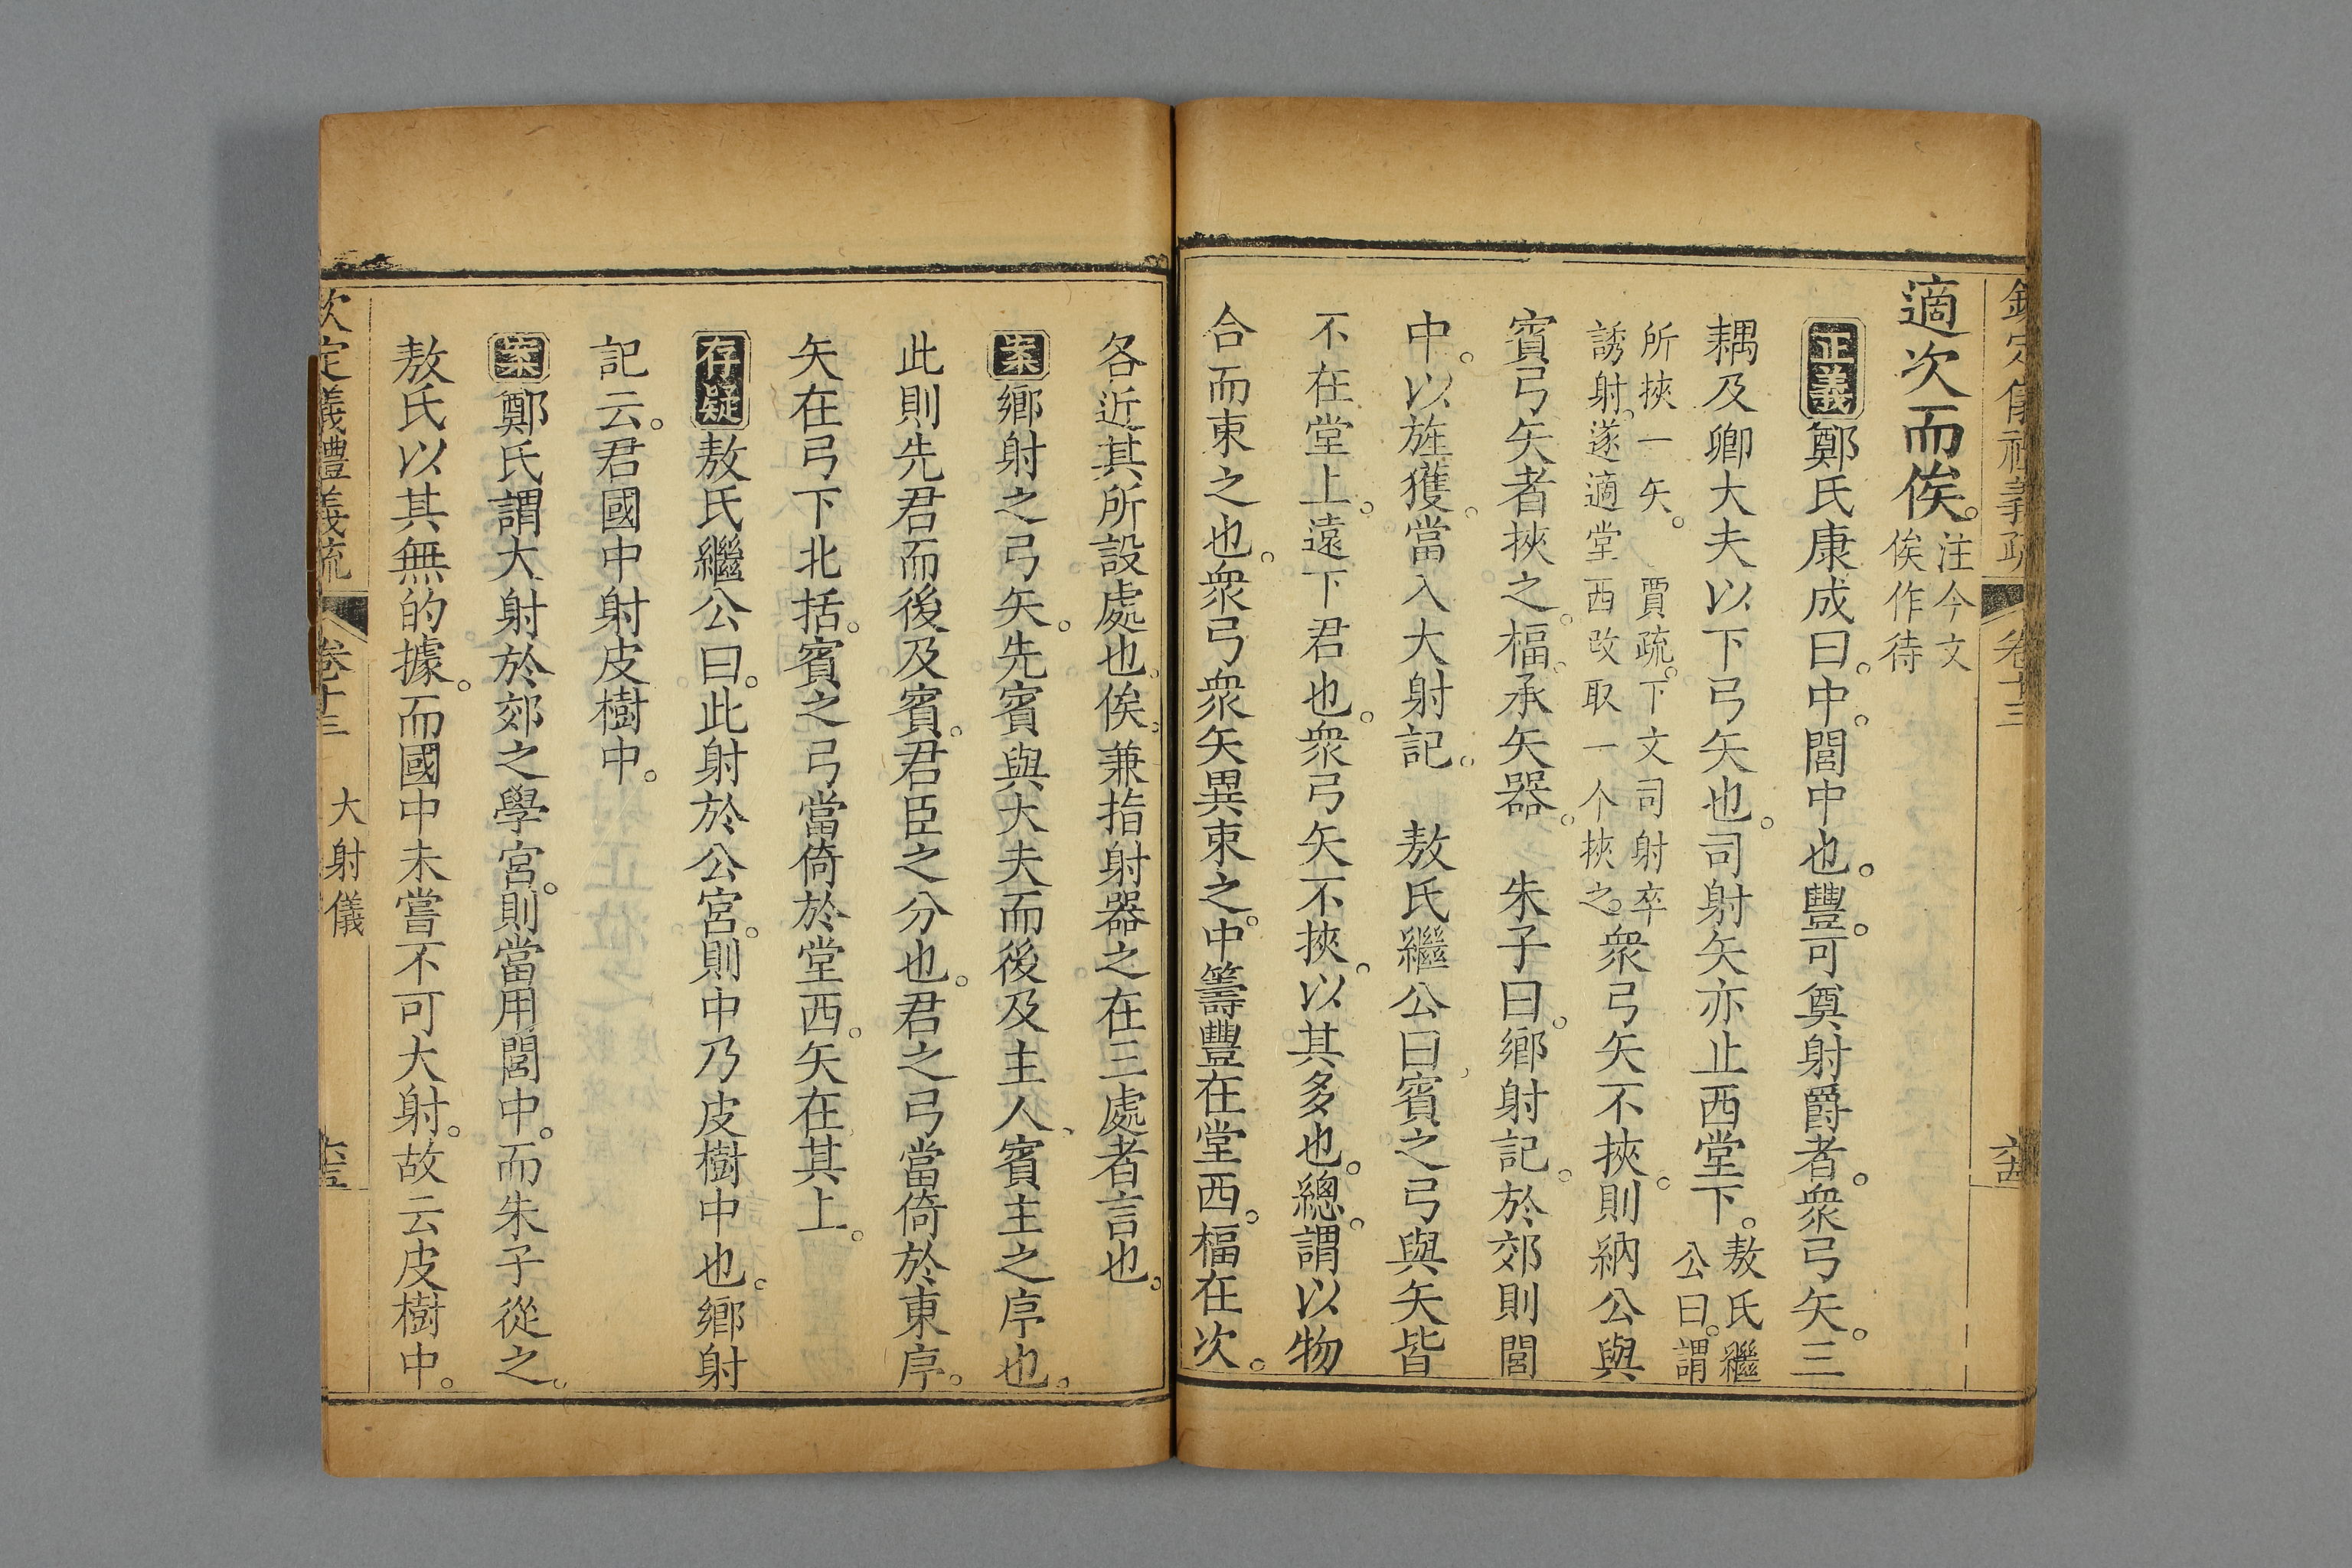 欽定儀禮義疏　卷十三　六十四
適次而俟。注今文俟作待
正義鄭氏康成曰。中。閭中也。豐。可奠射爵者。衆弓矢。三
耦及卿大夫以下弓矢也。司射矢亦止西堂下。敖氏繼公曰。謂
所挾一矢。　賈疏。下文司射卒誘射。遂適堂西改取一个挾之。衆弓矢不挾。則納公與
賓弓矢者挾之。楅。承矢器。　朱子曰。鄉射記。於郊則閭
中。以旌獲。當入大射記。　敖氏繼公曰。賓之弓與矢皆
不在堂上。遠下君也。衆弓矢不挾。以其多也。總。謂以物
合而束之也。衆弓衆矢異束之。中籌豐在堂西。楅在次。
各近其所設處也。俟。兼指射器之在三處者言也。
案鄉射之弓矢。先賓與大夫而後及主人。賓主之序也。
此則先君而後及賓。君臣之分也。君之弓當倚於東序。
矢在弓下北括。賓之弓當倚於堂西。矢在其上。
存疑敖氏繼公曰。此射於公宮。則中乃皮樹中也。鄉射
記云。君國中射皮樹中。
案鄭氏謂大射於郊之學宮。則當用閭中。而朱子從之。
敖氏以其無的據。而國中未嘗不可大射。故云皮樹中。
欽定儀禮義疏　卷十三　大射儀　六十五